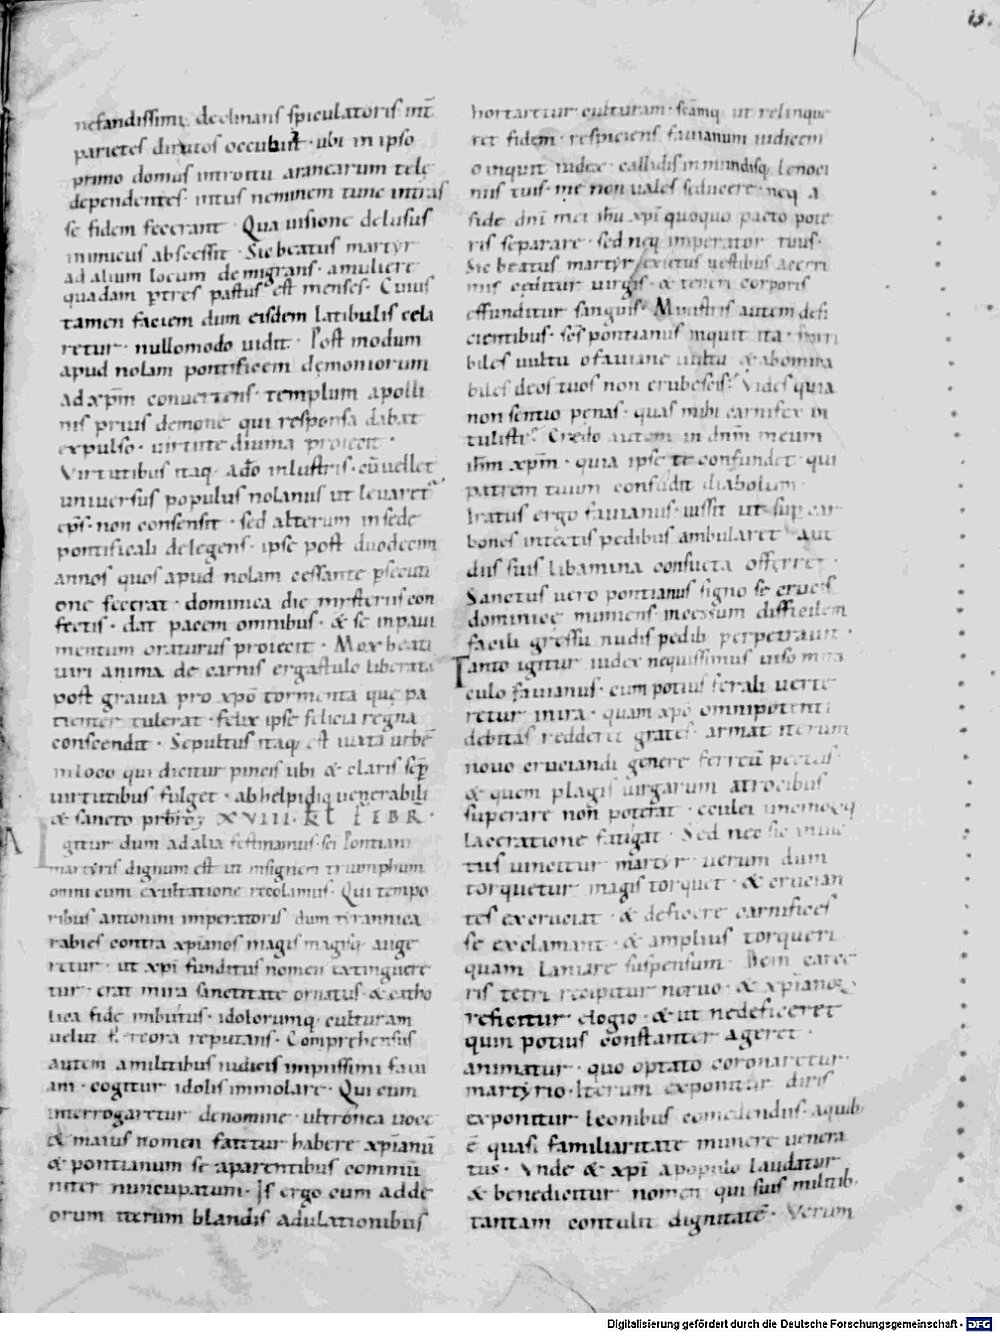 15.
nefandissimi declinans spiculatoris· int̄
parietes dirutos occubuit· ubi in ipso
primo domus introitu aranearum telę
dependentes· intus neminem tunc intras
se fidem fecerant· Qua uisione delusus
inimicus abscessit· Sic beatus martyr
ad alium locum demigrans· a muliere
quadam p̄ tres pastus est menses· Cuius
tamen faciem dum eisdem latibulis cela
retur· nullomodo uidit· Post modum
apud nolam pontificem dęmoniorum
ad xp̄m conuertens· templum apolli
nis prius demone qui responsa dabat
expulso· uirtute diuina proiecit·
Virtutibus itaq· adeo inlustris· cū uellet
uniuersus populus nolanus ut leuaret
ep̄s· non consensit· sed alterum in sede
pontificali delegens· ipse post duodecim
annos quos apud nolam cessante psecuti
one fecerat· dominica die mysteriis con
fectis· dat pacem omnibus· & se in paui
mentum oraturus proiecit· Mox beati
uiri anima de carnis ergastulo liberata
post grauia pro xpō tormenta quę pa
tienter tulerat· felix ipse felicia regna
conscendit· Sepultus itaq est iuxta urbē
in loco qui dicitur pincis ubi & claris sēp
uirtutibus fulget· ab helpidiq uenerabili
& sancto prb̄ro XVIII· KL FEBR·
Igitur dum ad alia festinamus· sc̄i Pontiani
martyris dignum est ut insignem triumphum
omni cum exultatione recolamus· Qui tempo
ribus antonini imperatoris dum tyrannica
rabies contra xp̄ianos magis magisq auge
retur· ut xp̄i funditus nomen extinguere
tur· erat mira sanctitate ornatus· & catho
lica fide imbutus· idolorumq culturam
uelut stercora reputans· Comprehensus
autem a militibus iudicis impiissimi faui
ani· cogitur idolis immolare· Qui cum
interrogaretur de nomine· ultronea uoce
& maius nomen fatetur habere xp̄ianū
& pontianum se a parentibus commu
niter nuncupatum· Is ergo eum adde
orum iterum blandis adulationibus
hortaretur culturam· sc̄amq ut relinque
ret fidem· respiciens fauianum iudicem
o inquit iudex callidis inmundisq lenoci
niis tuis· me non uales seducere· neq a
fide dn̄i mei ihū xp̄i quoquo pacto pote
ris separare· sed neq imperator tuus·
Sic beatus martyr exutus uestibus acerri
mis ceditur uirgis· & teneri corporis
effunditur sanguis· Ministris autem defi
cientibus· sc̄s pontianus inquit ita· horri
biles uultu o fauiane uultu & abomina
biles deos tuos non erubescis? Vides quia
non sentio pęnas· quas mihi carnifex in
tulisti? Credo autem in dn̄m meum
ihm̄ xp̄m· quia ipse te confundet· qui
patrem tuum confudit diabolum·
Iratus ergo fauianus· iussit ut sup̄ car
bones intectis pedibus ambularet· aut
diis suis libamina consueta offerret·
Sanctus uero pontianus signo se crucis
dominicę muniens· incessum difficilem
facili gressu nudis pedib perpetrauit·
Tanto igitur iudex nequissimus uiso mira
culo fauianus· cum potius ferali uerte
retur in ira· quam xpō omnipotenti
debitas redderet grates· armat iterum
nouo cruciandi genere ferreū pectus·
& quem plagis uirgarum atrocibus
superare non poterat· eculei unemoq
laceratione fatigat· Sed nec sic inuic
tus uincitur martyr uerum dum
torquetur magis torquet· & crucian
tes excruciat· & deficere carnifices
se exclamant· & amplius torqueri
quam laniare suspensum· Dein carce
ris tetri recipitur neruo· & xp̄iano
reficitur elogio· & ut ne deficeret
quin potius constanter ageret·
animatur· quo optato coronaretur·
martyrio· Iterum exponitur diris
exponitur leonibus comedendus· a quib·
ē quasi familiaritate munere uenera
tus· Vnde & xp̄i a populo laudatur
& benedicitur nomen qui suis militib·
tantam contulit dignitatē· Verum
Digitalisierung gefördert durch die Deutsche Forschungsgemeinschaft - DFG